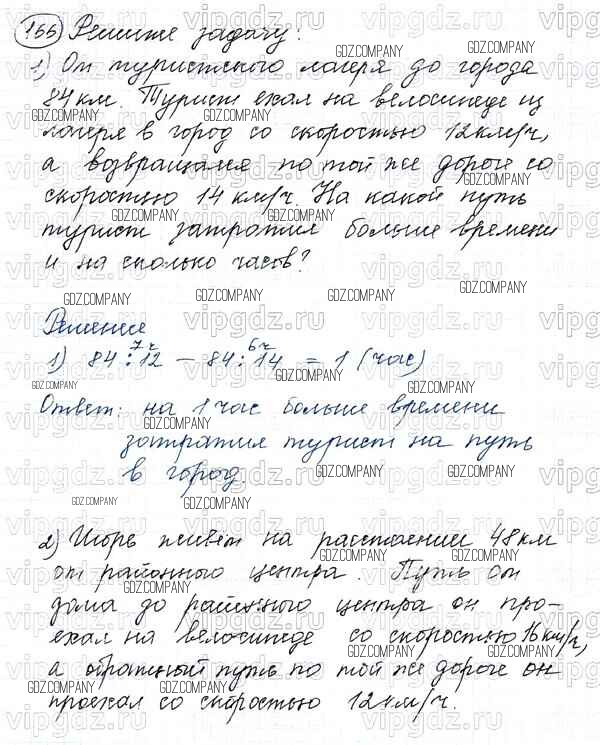 166 Решите задачу:
1) От туристского лагеря до города
84 км. Турист ехал на велосипеде из
лагеря в город со скоростью 12 км/ч,
а возвращался по той же дороге со
скоростью 14 км/ч. На какой путь
турист затратил больше времени
и на сколько часов?
Решение
7ч 6ч
1) 84:12 – 84:14 = 1 (час)
Ответ: на 1 час больше времени
затратил турист на путь
в город.
2) Игорь живёт на расстоянии 48 км
от районного центра. Путь от
дома до районного центра он про-
ехал на велосипеде со скоростью 16 км/ч,
а обратный путь по той же дороге он
проехал со скоростью 12 км/ч.
vipgdz.ru
GDZ.COMPANY